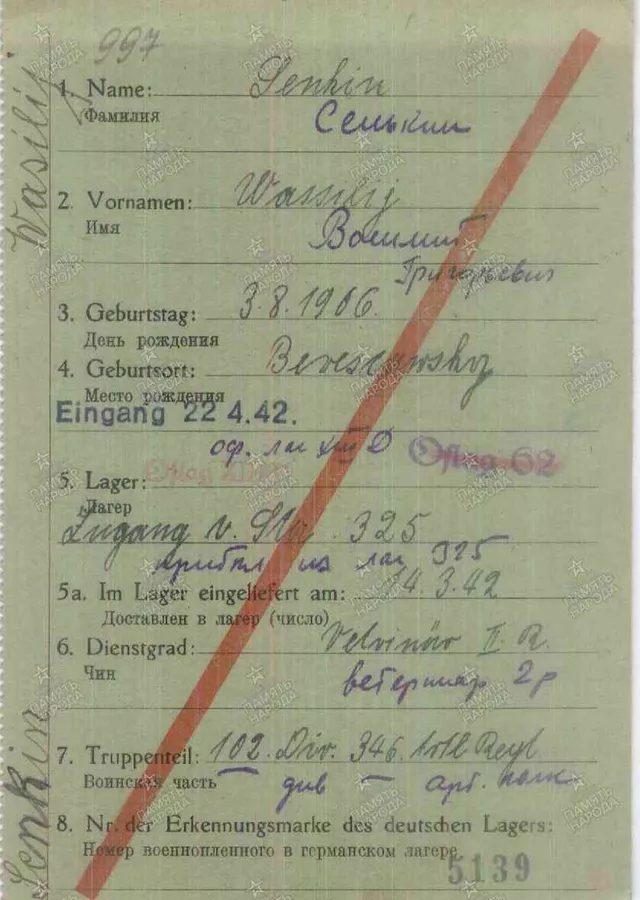 997
1. Name: Senkin
Фамилия Сенькин
2. Vornamen: Wassilij
Имя Василий
Григорьевич
3. Geburtstag: 3.8.1906.
День рождения
4. Geburtsort:
Место рождения
Eingang 22 4.42.
оф. лаг XIII D Oflag 62
5. Lager:
Лагерь
Zugang v. Sta 325
прибыл из лаг 325
5a. Im Lager eingeliefert am: 14.3.42
Доставлен в лагерь (число)
6. Dienstgrad: II. R.
Чин ветеринар 2 р
7. Truppenteil: 102. Div. 346. Artl Regt
Воинская часть див — арт. полк
8. Nr. der Erkennungsmarke des deutschen Lagers:
Номер военнопленного в германском лагере
5139
Senkin Wasilij
ПАМЯТЬ НАРОДА